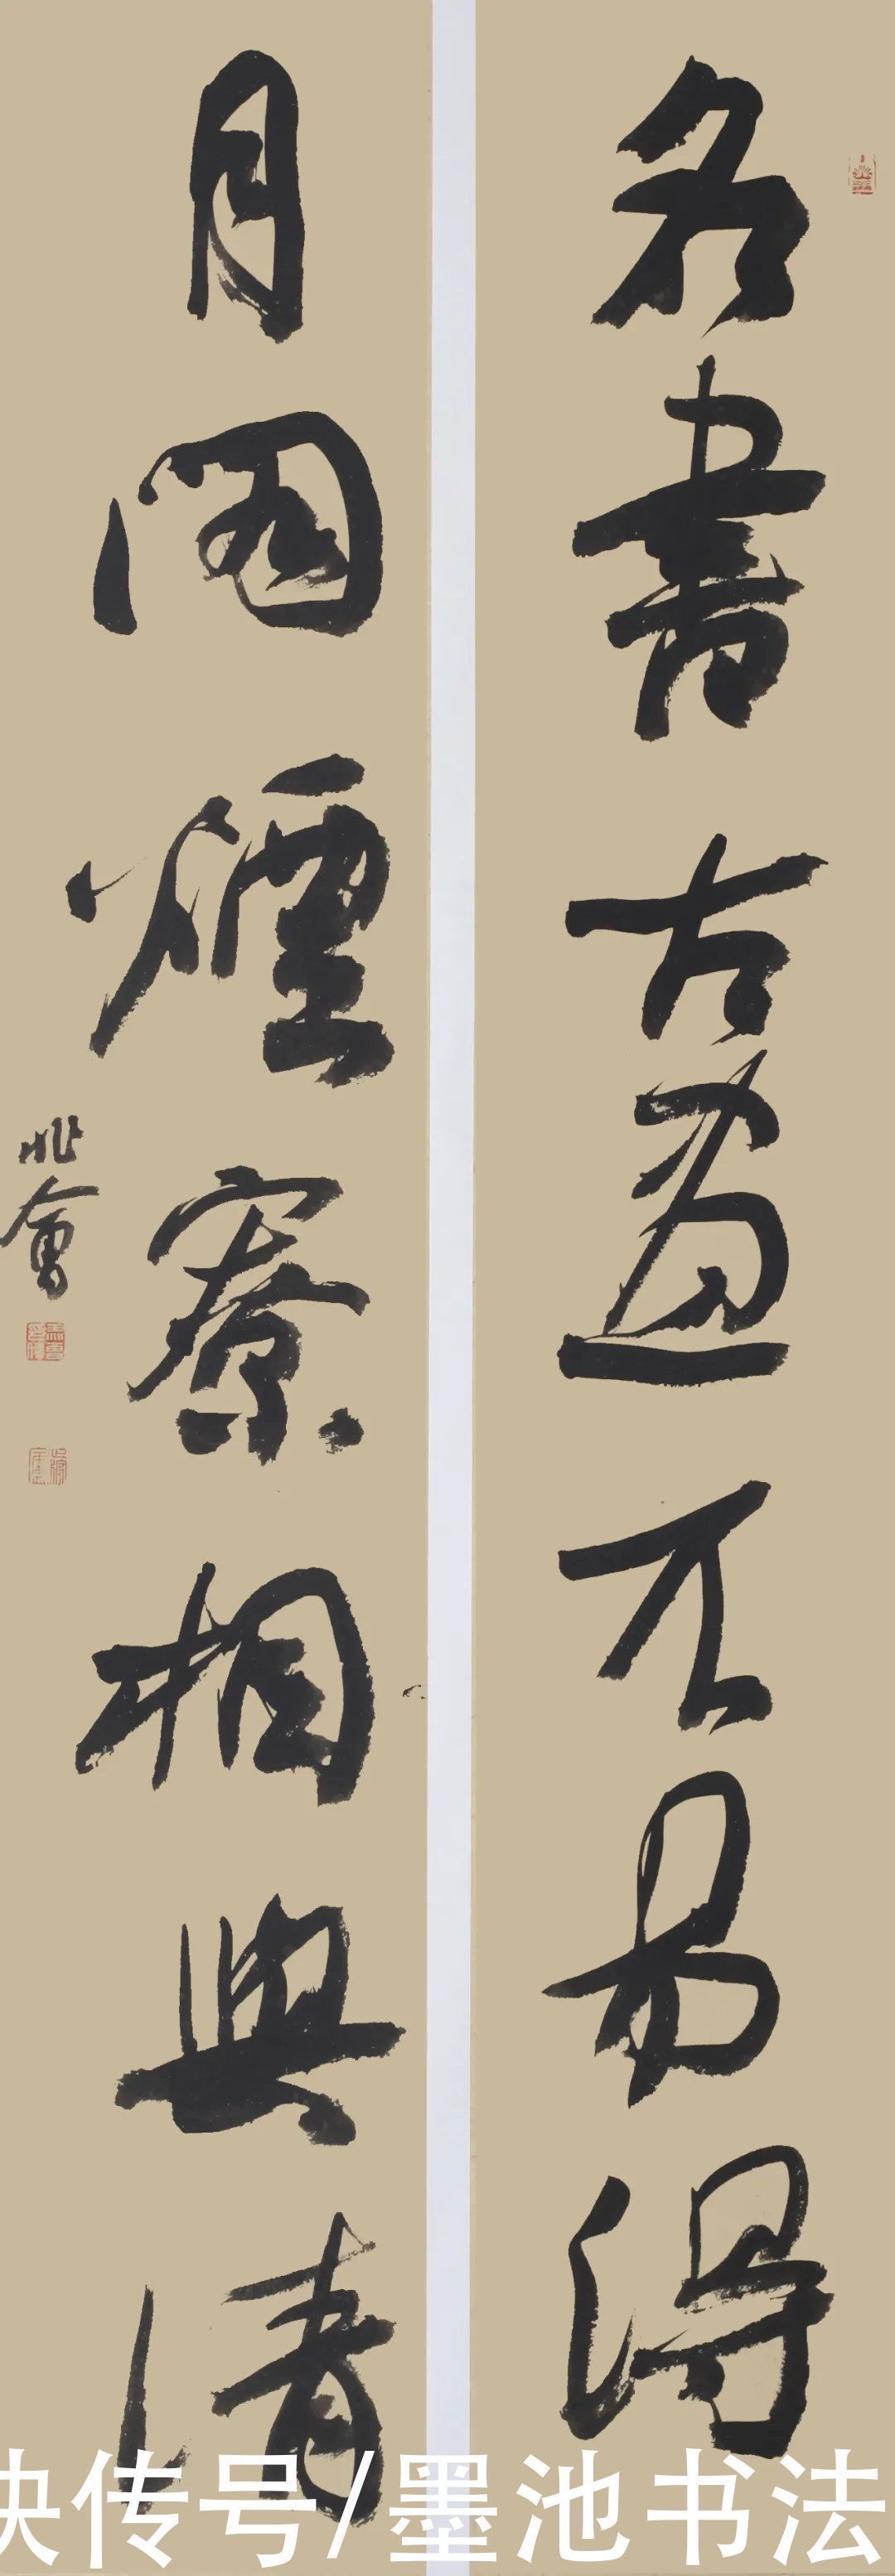 名書古畫不易得
月閣煙寮相與清
兆會
快传号/墨池书法